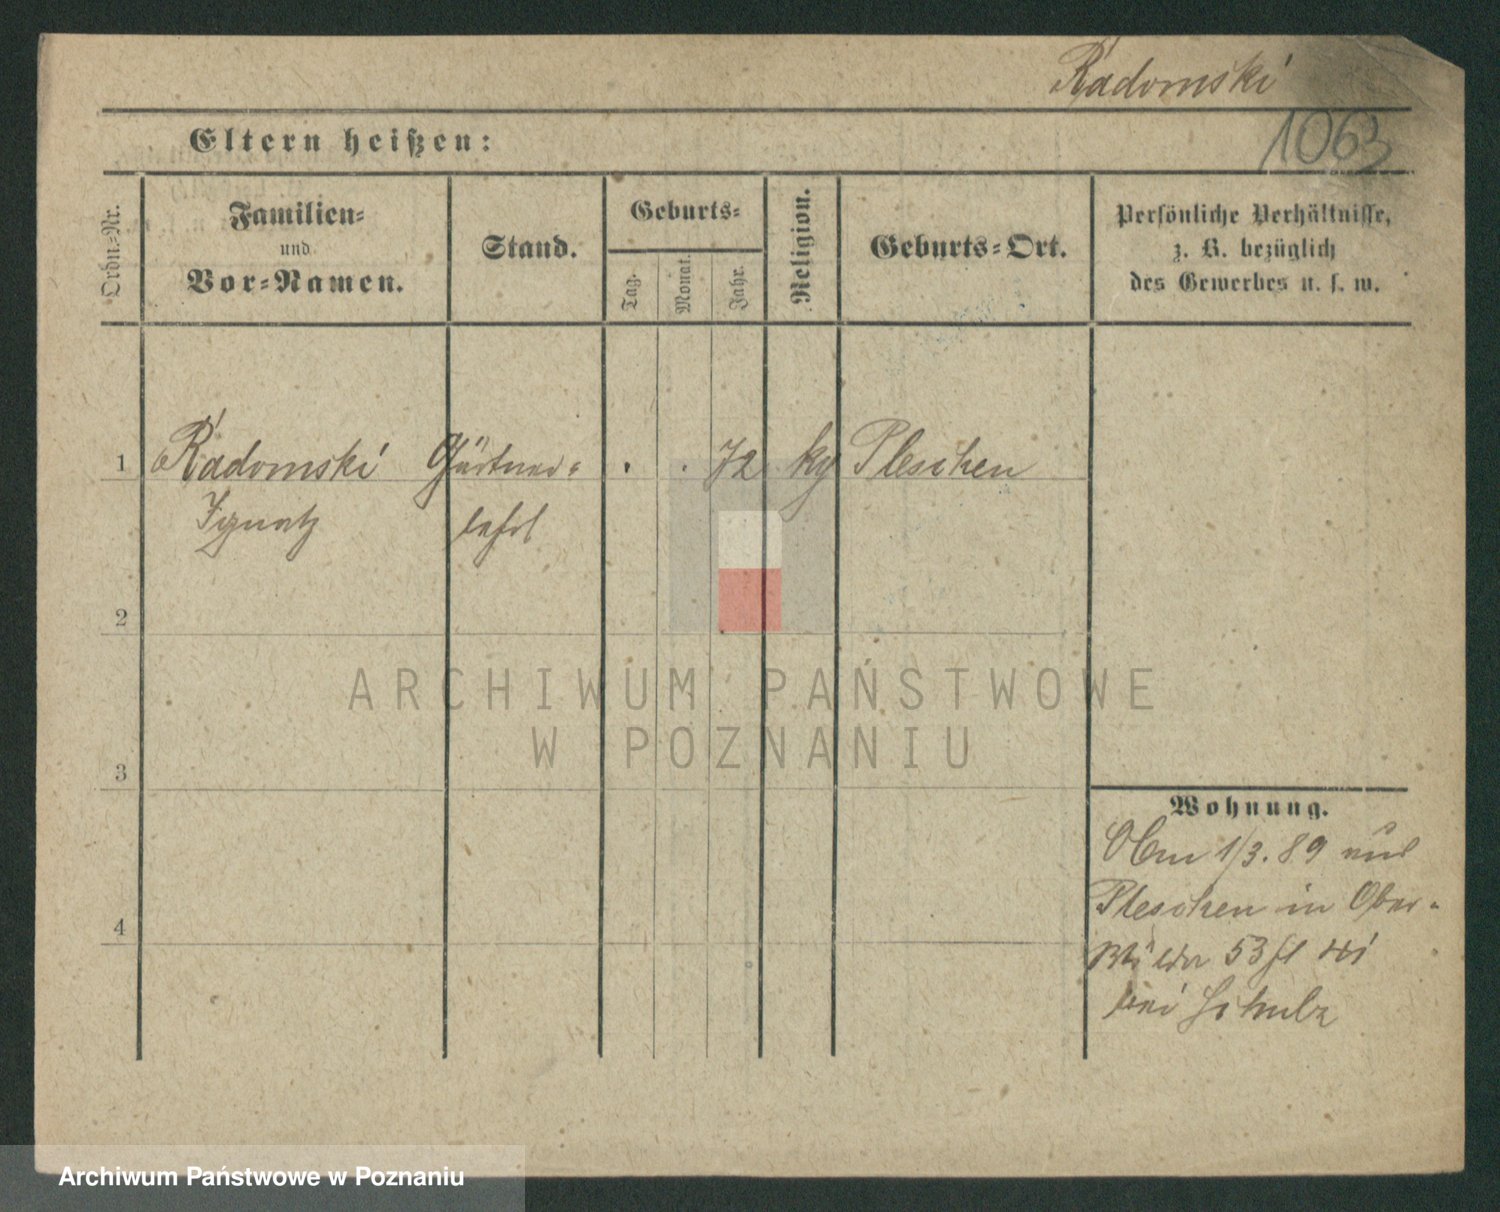 Radomski
1063
Eltern heißen:
Ordn.-Nr.
Familien-
und
Vor-Namen.
Stand.
Geburts-
Tag.
Monat.
Jahr.
Religion.
Geburts-Ort.
Persönliche Verhältnisse,
z. B. bezüglich
des Gewerbes u. s. w.
1 Radomski Gärtner- . . 72 Pleschen
Ignatz lehrl
2
3
4
Wohnung.
1/3. 89 aus
Pleschen in Ober-
Wilda 53
bei Schulz
ARCHIWUM PAŃSTWOWE
W POZNANIU
Archiwum Państwowe w Poznaniu